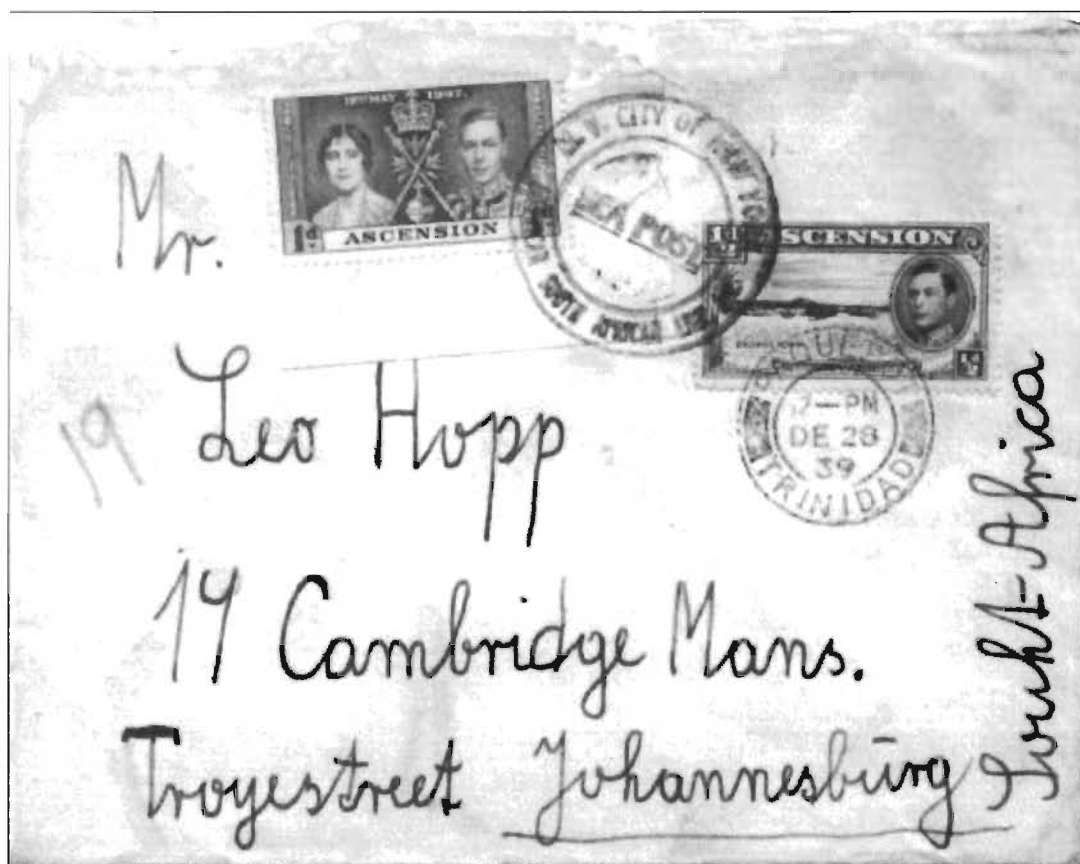 12TH MAY 1937.
1d. ASCENSION
M.V. CITY OF NEW YORK
SEA POST
SOUTH AFRICAN LINE
ASCENSION
½d
PM
DE 28
39
TRINIDAD
Mr.
Leo Hopp
19
Cambridge Mans.
Troyestreet Johannesbūrg
Souht-Africa